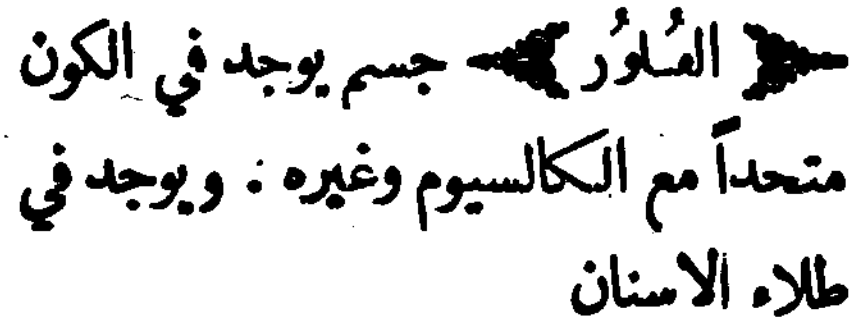 ﴿ الفُلوُر ﴾ جسم يوجد في الكون
متحداً مع الكالسيوم وغيره : ويوجد في
طلاء الاسنان